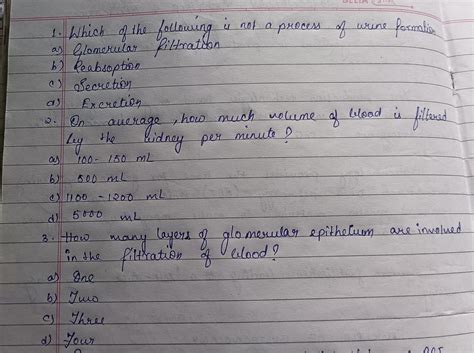 1. Which of the following is not a process of urine formation
a) Glomerular filtration
b) Reabsoption
c) Secretion
d) Excretion
2. On average, how much volume of blood is filtered
by the kidney per minute?
a) 100-150 mL
b) 500 mL
c) 1100-1200 mL
d) 5000 mL
3. How many layers of glomerular epithelum are involved
in the filtration of blood?
a) One
b) Two
c) Three
d) Four